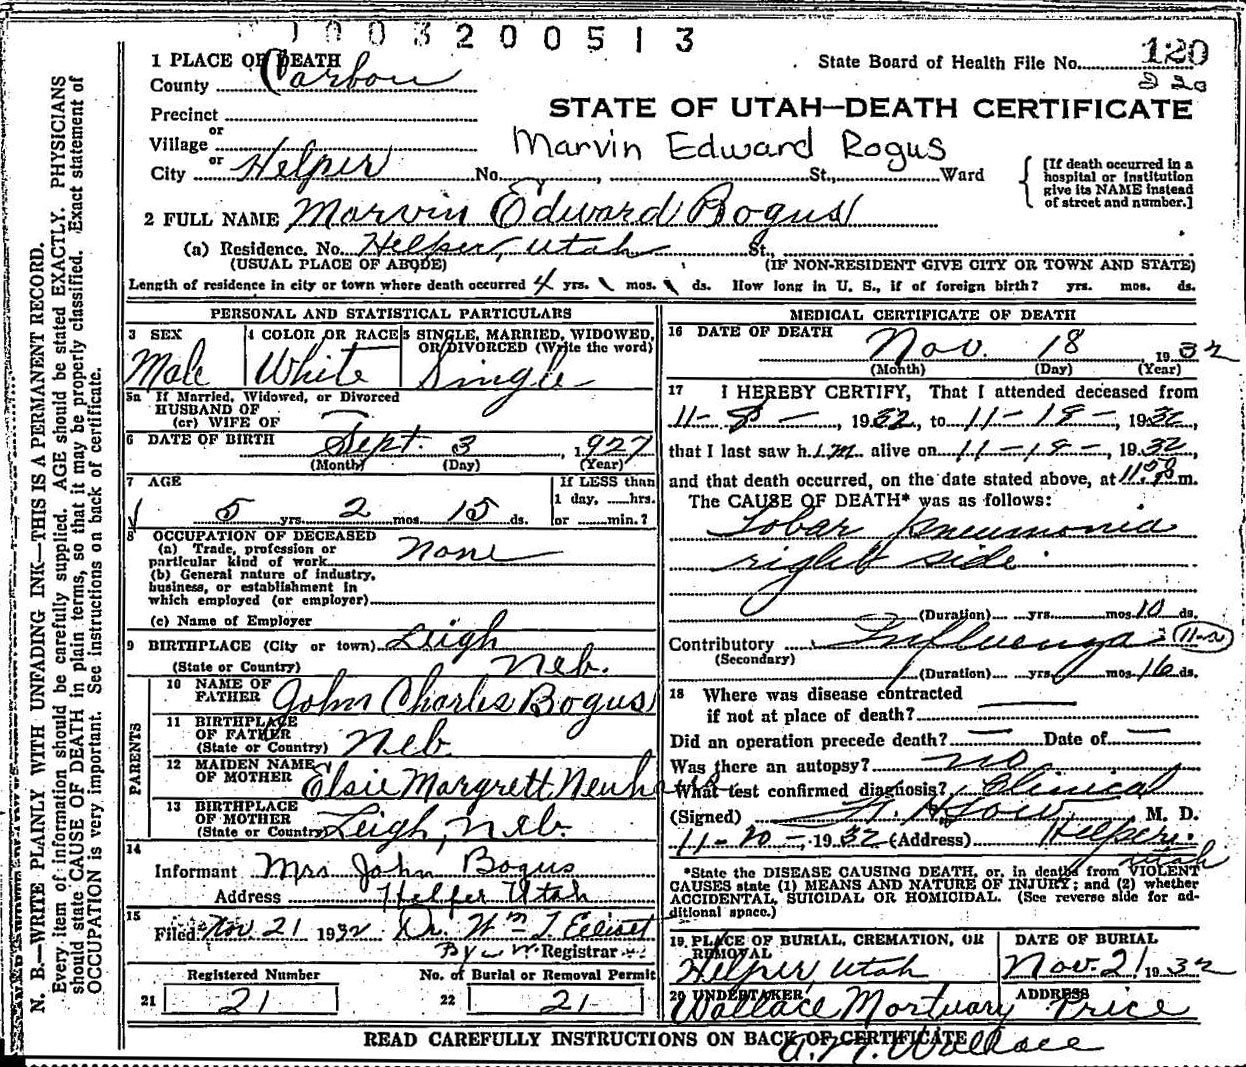 1003200513
1 PLACE OF DEATH
County Carbon
State Board of Health File No. 120
Precinct
or
Village
or
City Helper No. , St., Ward
STATE OF UTAH—DEATH CERTIFICATE
Marvin Edward Rogus
[If death occurred in a
hospital or institution
give its NAME instead
of street and number.]
2 FULL NAME Marvin Edward Bogus
(a) Residence. No. Helper, Utah St.,
(USUAL PLACE OF ABODE) (IF NON-RESIDENT GIVE CITY OR TOWN AND STATE)
Length of residence in city or town where death occurred 4 yrs. mos. ds. How long in U. S., if of foreign birth? yrs. mos. ds.
PERSONAL AND STATISTICAL PARTICULARS
3 SEX 4 COLOR OR RACE 5 SINGLE, MARRIED, WIDOWED,
OR DIVORCED (Write the word)
Male White Single
5a If Married, Widowed, or Divorced
HUSBAND OF
(or) WIFE OF
6 DATE OF BIRTH Sept. 3, 1927
(Month) (Day) (Year)
7 AGE If LESS than
1 day, hrs.
5 yrs. 2 mos. 15 ds. or min.?
8 OCCUPATION OF DECEASED
(a) Trade, profession or
particular kind of work None
(b) General nature of industry,
business, or establishment in
which employed (or employer)
(c) Name of Employer
9 BIRTHPLACE (City or town) Leigh
(State or Country) Neb.
PARENTS
10 NAME OF
FATHER John Charles Bogus
11 BIRTHPLACE
OF FATHER
(State or Country) Neb
12 MAIDEN NAME
OF MOTHER Elsie Margrett
13 BIRTHPLACE
OF MOTHER
(State or Country) Leigh, Neb.
14
Informant Mrs John Bogus
Address Helper Utah
15
Filed Nov. 21 1932 Dr. Wm T. Elliott
By Registrar
Registered Number No. of Burial or Removal Permit
21 21 22 21
MEDICAL CERTIFICATE OF DEATH
16 DATE OF DEATH Nov. 18, 1932
(Month) (Day) (Year)
17 I HEREBY CERTIFY, That I attended deceased from
11-8-, 1932, to 11-18-, 1932,
that I last saw h im alive on 11-18-, 1932,
and that death occurred, on the date stated above, at m.
The CAUSE OF DEATH* was as follows:
Lobar pneumonia
right side
(Duration) yrs. mos. 10 ds.
Contributory Influenza
(Secondary)
(Duration) yrs. mos. 16 ds.
18 Where was disease contracted
if not at place of death?
Did an operation precede death? — Date of —
Was there an autopsy? no
What test confirmed diagnosis? Clinical
(Signed) , M. D.
11-20-, 1932 (Address) Helper,
Utah
*State the DISEASE CAUSING DEATH, or, in deaths from VIOLENT
CAUSES state (1) MEANS AND NATURE OF INJURY; and (2) whether
ACCIDENTAL, SUICIDAL OR HOMICIDAL. (See reverse side for ad-
ditional space.)
19 PLACE OF BURIAL, CREMATION, OR
REMOVAL
Helper, Utah
DATE OF BURIAL
Nov. 21 1932
20 UNDERTAKER ADDRESS
Wallace Mortuary Price
A. M. Wallace
READ CAREFULLY INSTRUCTIONS ON BACK OF CERTIFICATE
N. B.—WRITE PLAINLY WITH UNFADING INK—THIS IS A PERMANENT RECORD.
Every item of information should be carefully supplied. AGE should be stated EXACTLY. PHYSICIANS
should state CAUSE OF DEATH in plain terms, so that it may be properly classified. Exact statement of
OCCUPATION is very important. See instructions on back of certificate.